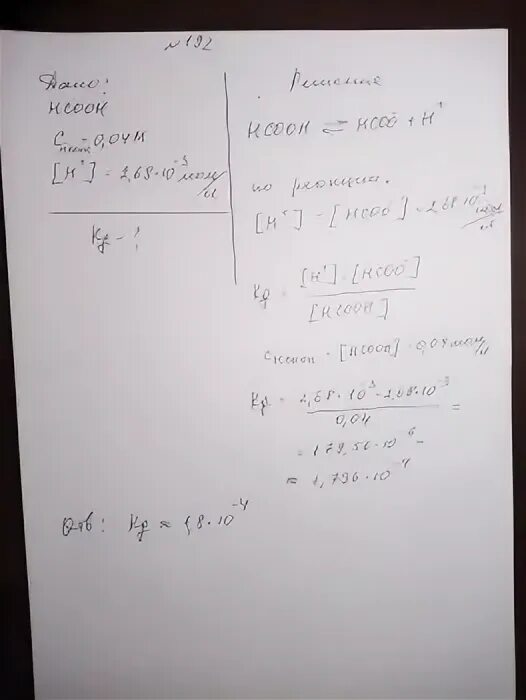 №192
Дано:
HCOOH
C = 0,04M
[H⁺] = 2,68·10⁻³ моль/л
Kд - ?
Решение
HCOOH ⇌ HCOO⁻ + H⁺
по реакции.
[H⁺] = [HCOO⁻] = 2,68·10⁻³ моль/л
Kд = [H⁺]·[HCOO⁻] / [HCOOH]
C HCOOH = [HCOOH] = 0,04 моль/л
Kд = 2,68·10⁻³·2,68·10⁻³ / 0,04 =
= 179,56·10⁻⁶ =
= 1,796·10⁻⁴
Отв: Kд ≈ 1,8·10⁻⁴